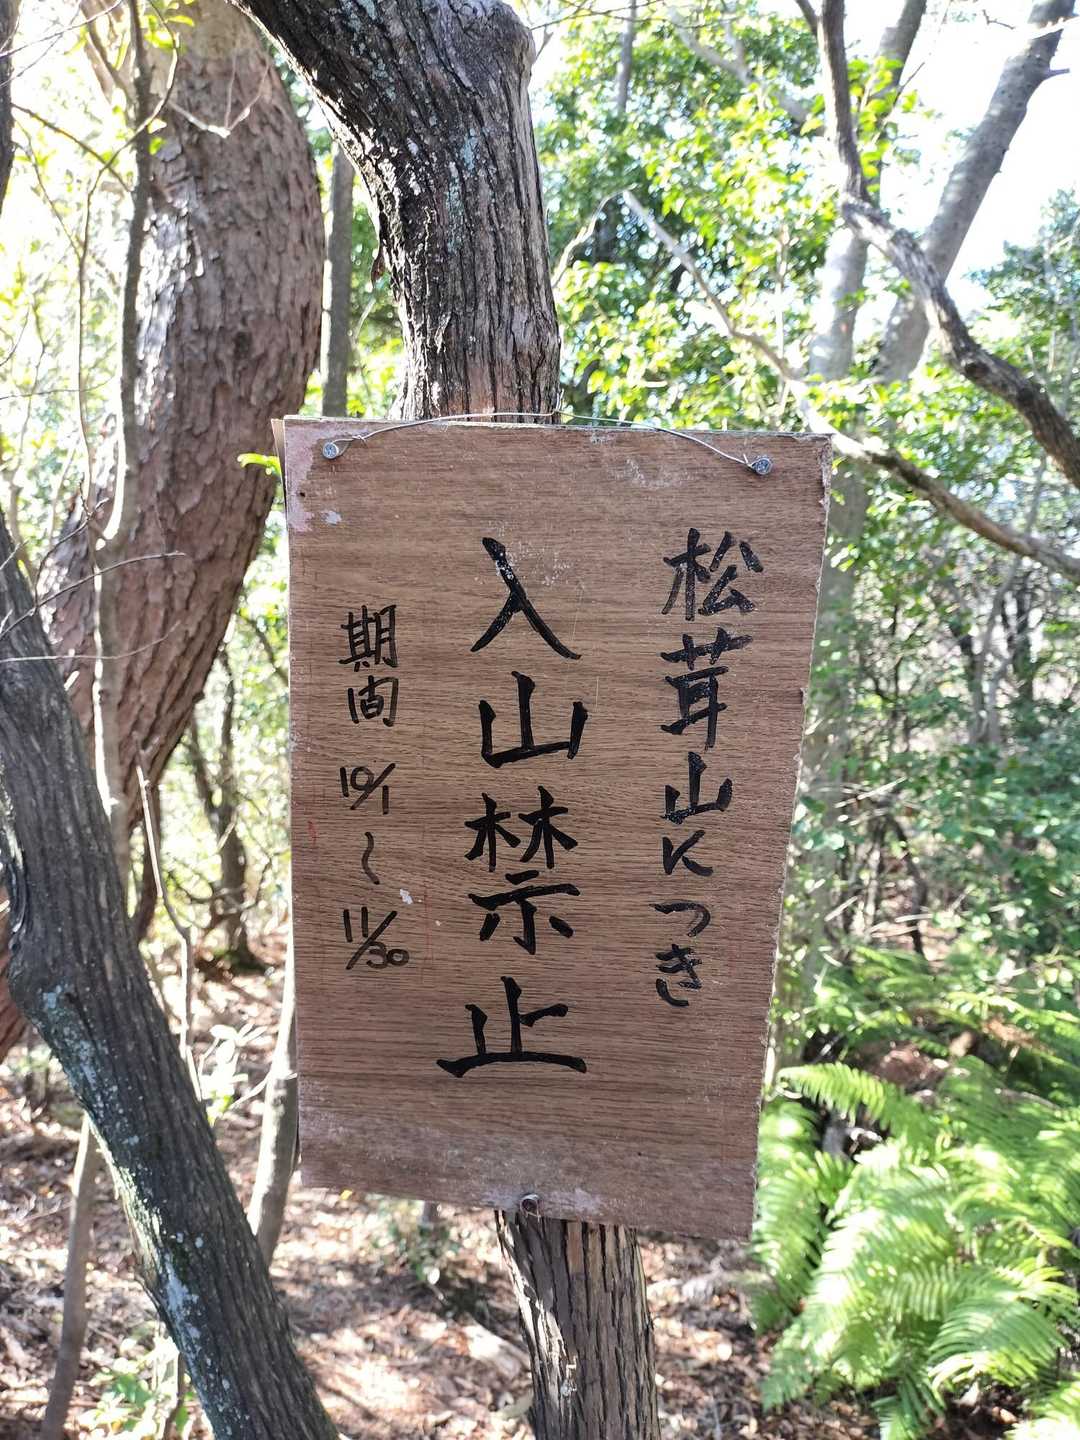 松茸山につき
入山禁止
期間 10/1 ~ 11/30